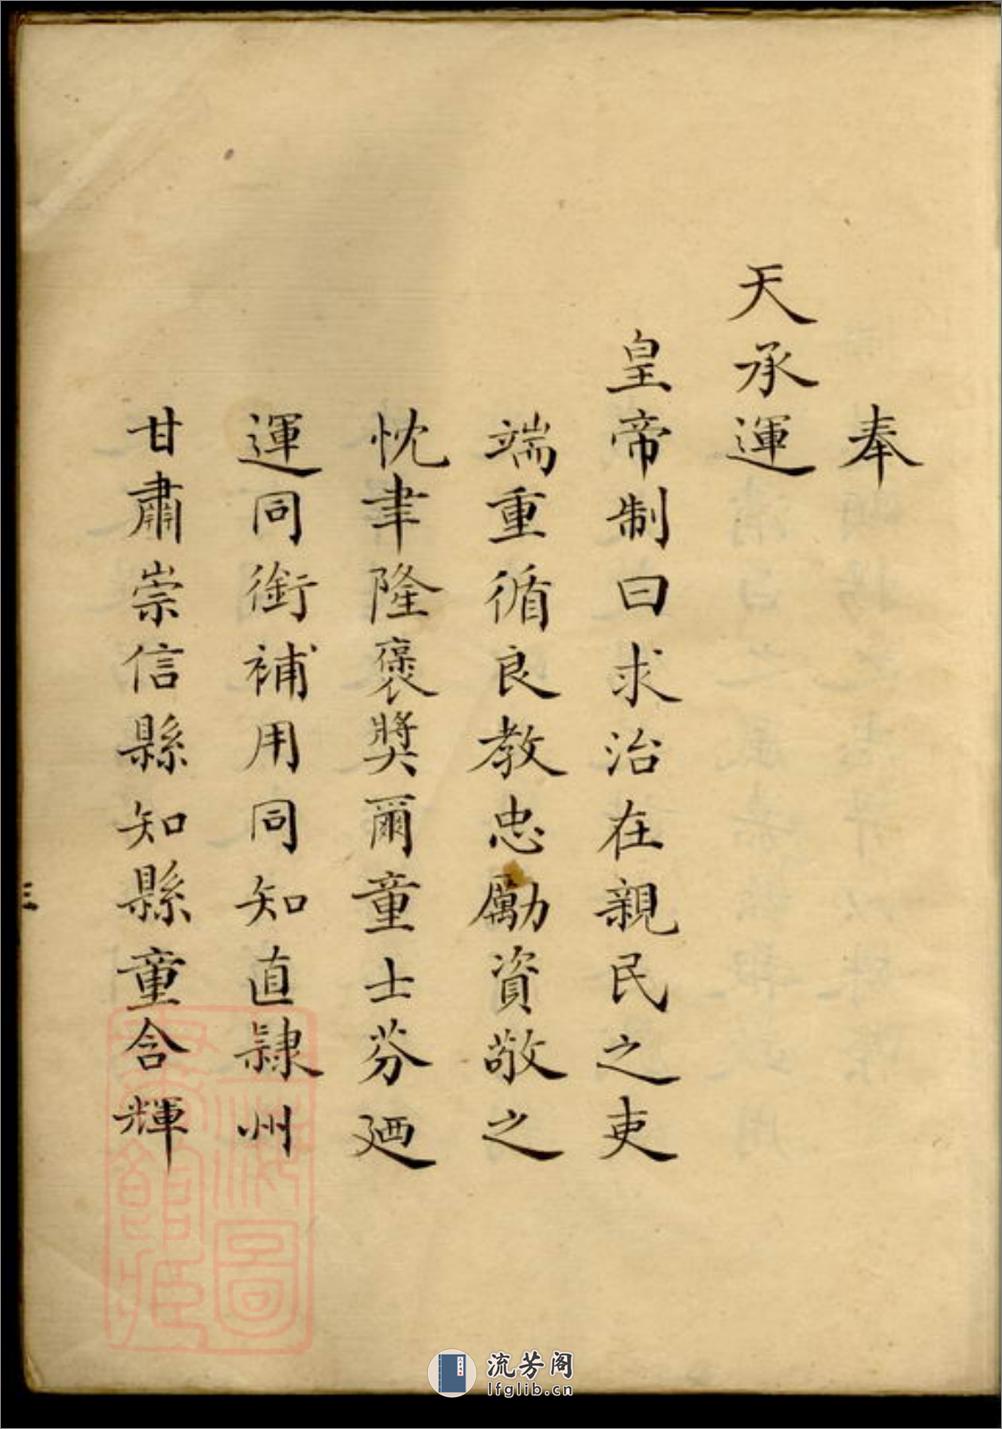 奉
天承運
皇帝制曰求治在親民之吏
端重循良教忠勵資敬之
忱聿隆褒獎爾童士芬廼
運同銜補用同知直隸州
甘肅崇信縣知縣童含輝
三
上海圖書館藏
流芳阁
lfglib.cn